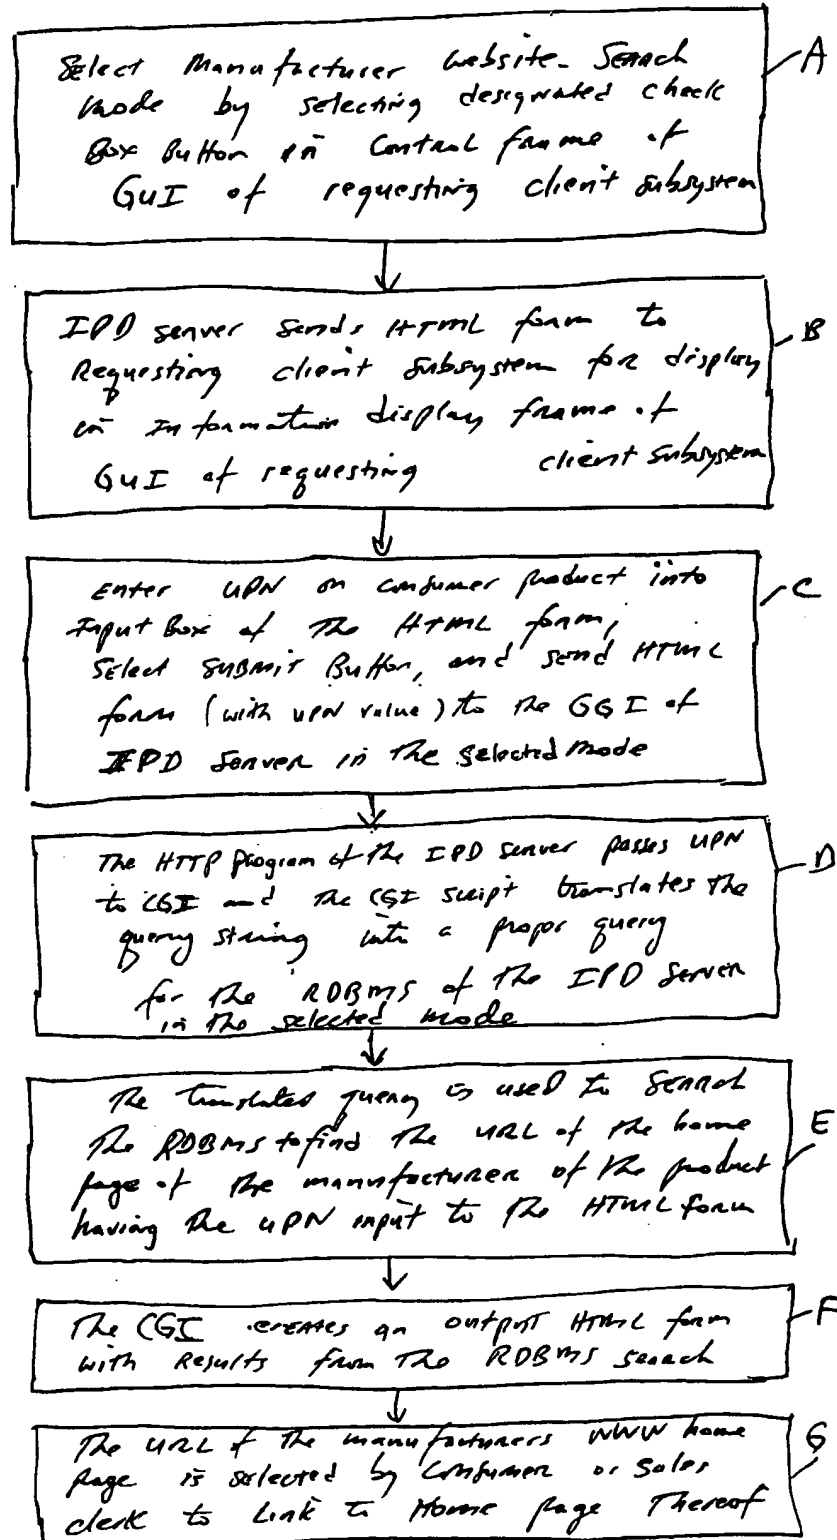 Select Manufacturer Website-Search
Mode by selecting designated check
Box Button in Control frame of
GUI of requesting client subsystem
A
IPD server sends HTML form to
Requesting client subsystem for display
in Information display frame of
GUI of requesting client subsystem
B
Enter UPN on consumer product into
Input Box of the HTML form,
Select SUBMIT Button, and send HTML
form (with UPN value) to the GGI of
IPD Server in the selected mode
C
The HTTP program of the IPD server passes UPN
to CGI and the CGI script translates the
query string into a proper query
for the RDBMS of the IPD Server
in the selected mode
D
The translated query is used to Search
the RDBMS to find the URL of the home
page of the manufacturer of the product
having the UPN input to the HTML form
E
The CGI creates an output HTML form
with Results from the RDBMS search
F
The URL of the manufacturers WWW home
page is selected by Consumer or Sales
clerk to Link to Home page Thereof
G